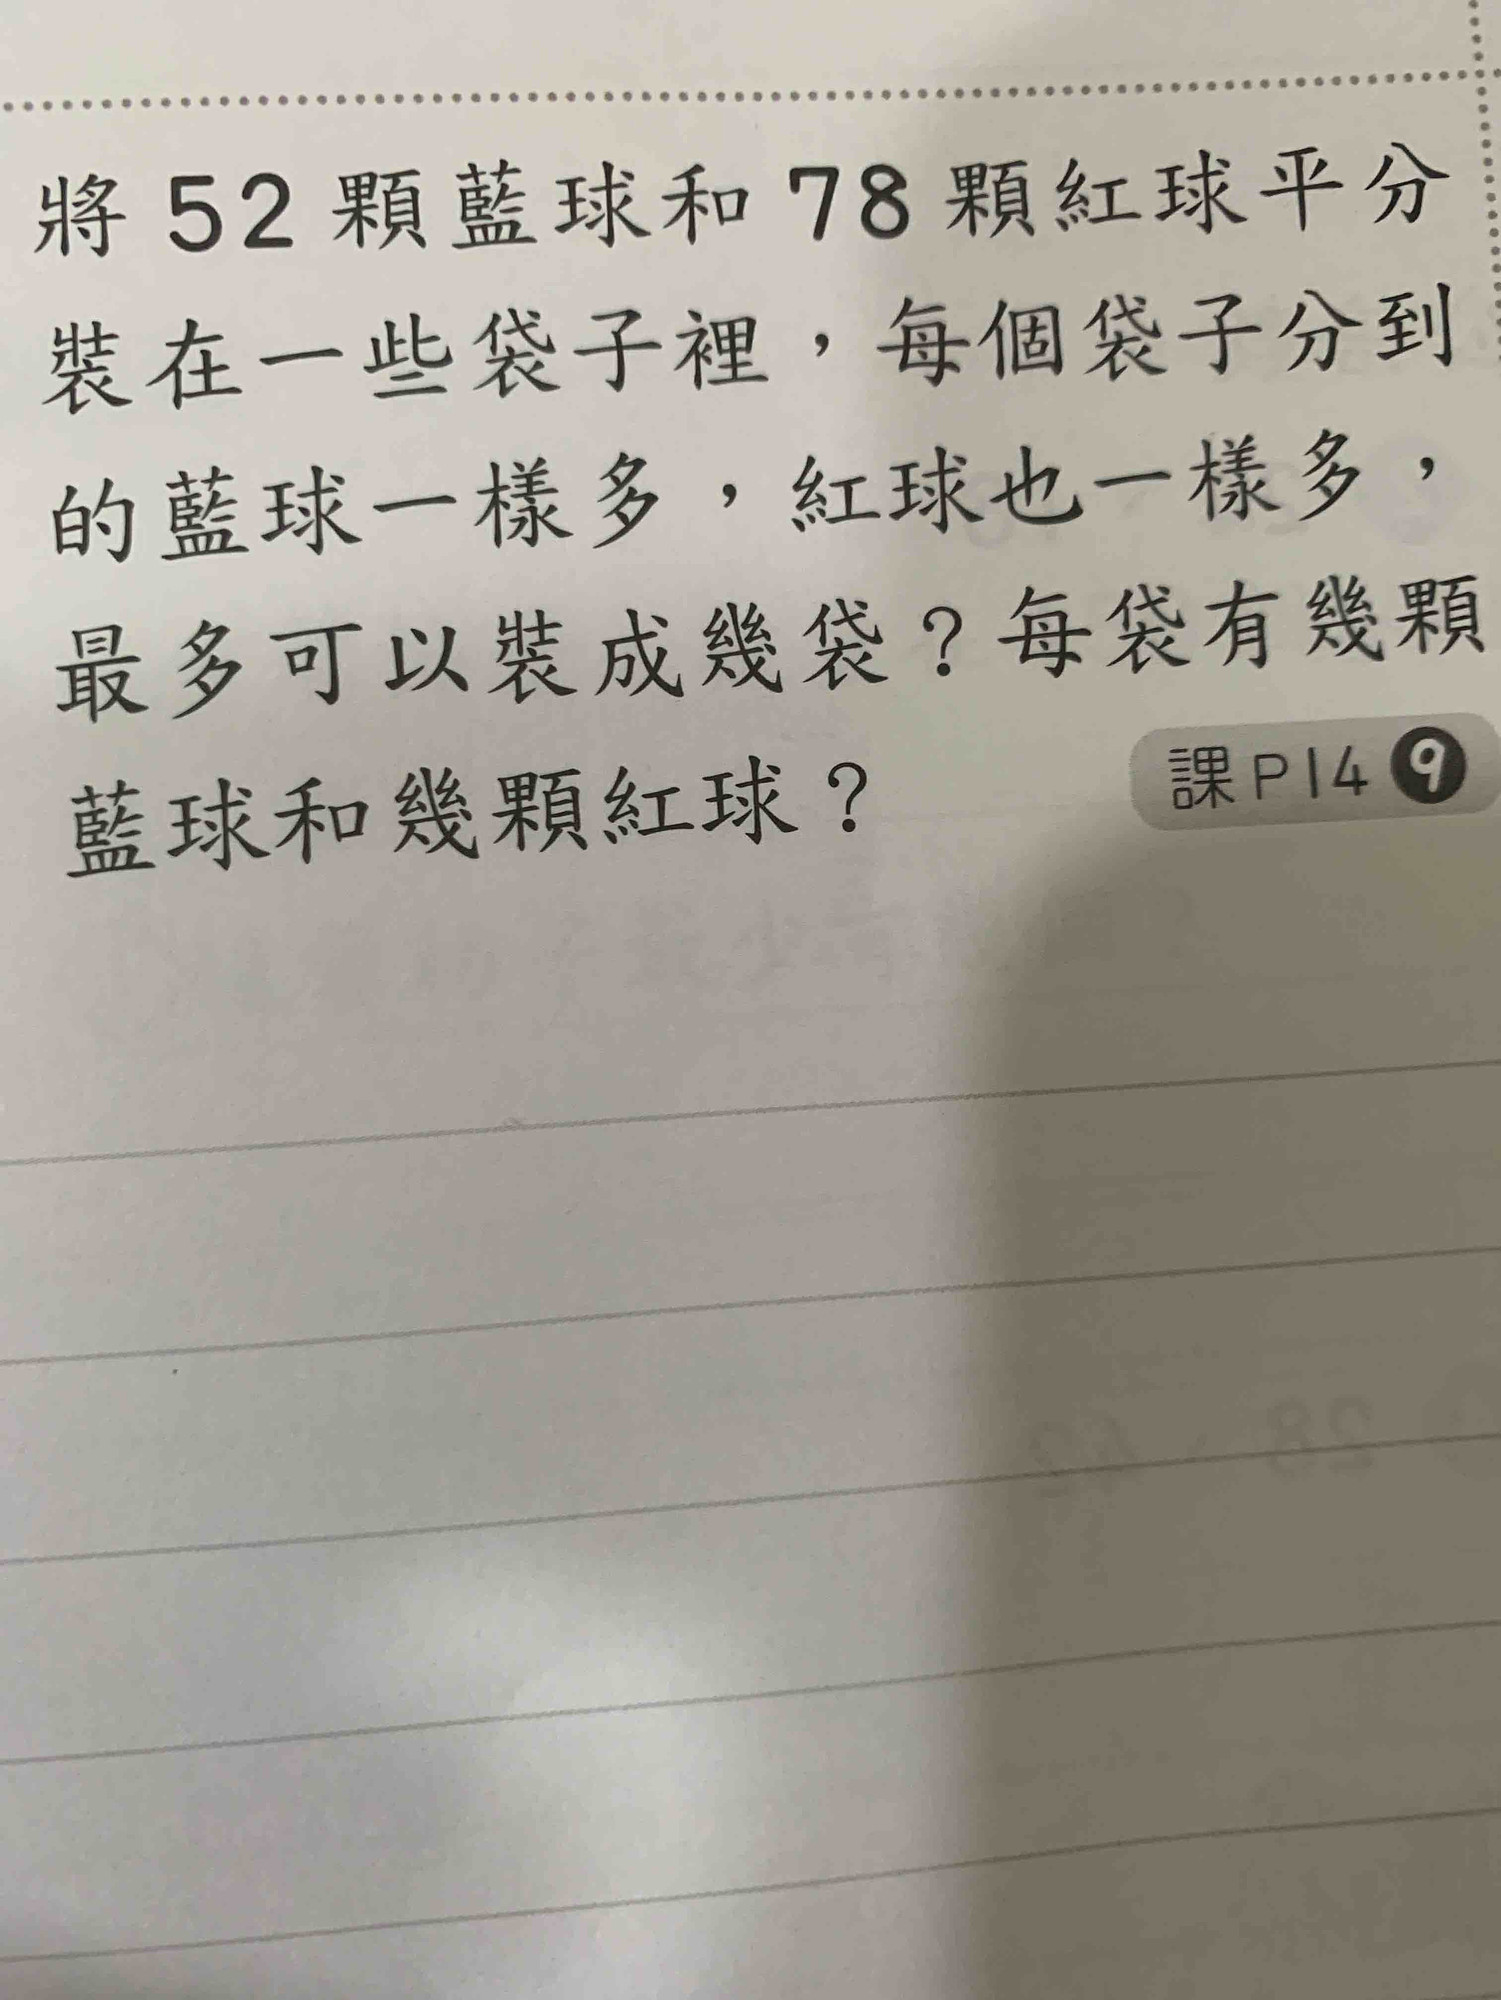 將 52 顆藍球和 78 顆紅球平分
裝在一些袋子裡，每個袋子分到
的藍球一樣多，紅球也一樣多，
最多可以裝成幾袋？每袋有幾顆
藍球和幾顆紅球？
課 P14 9